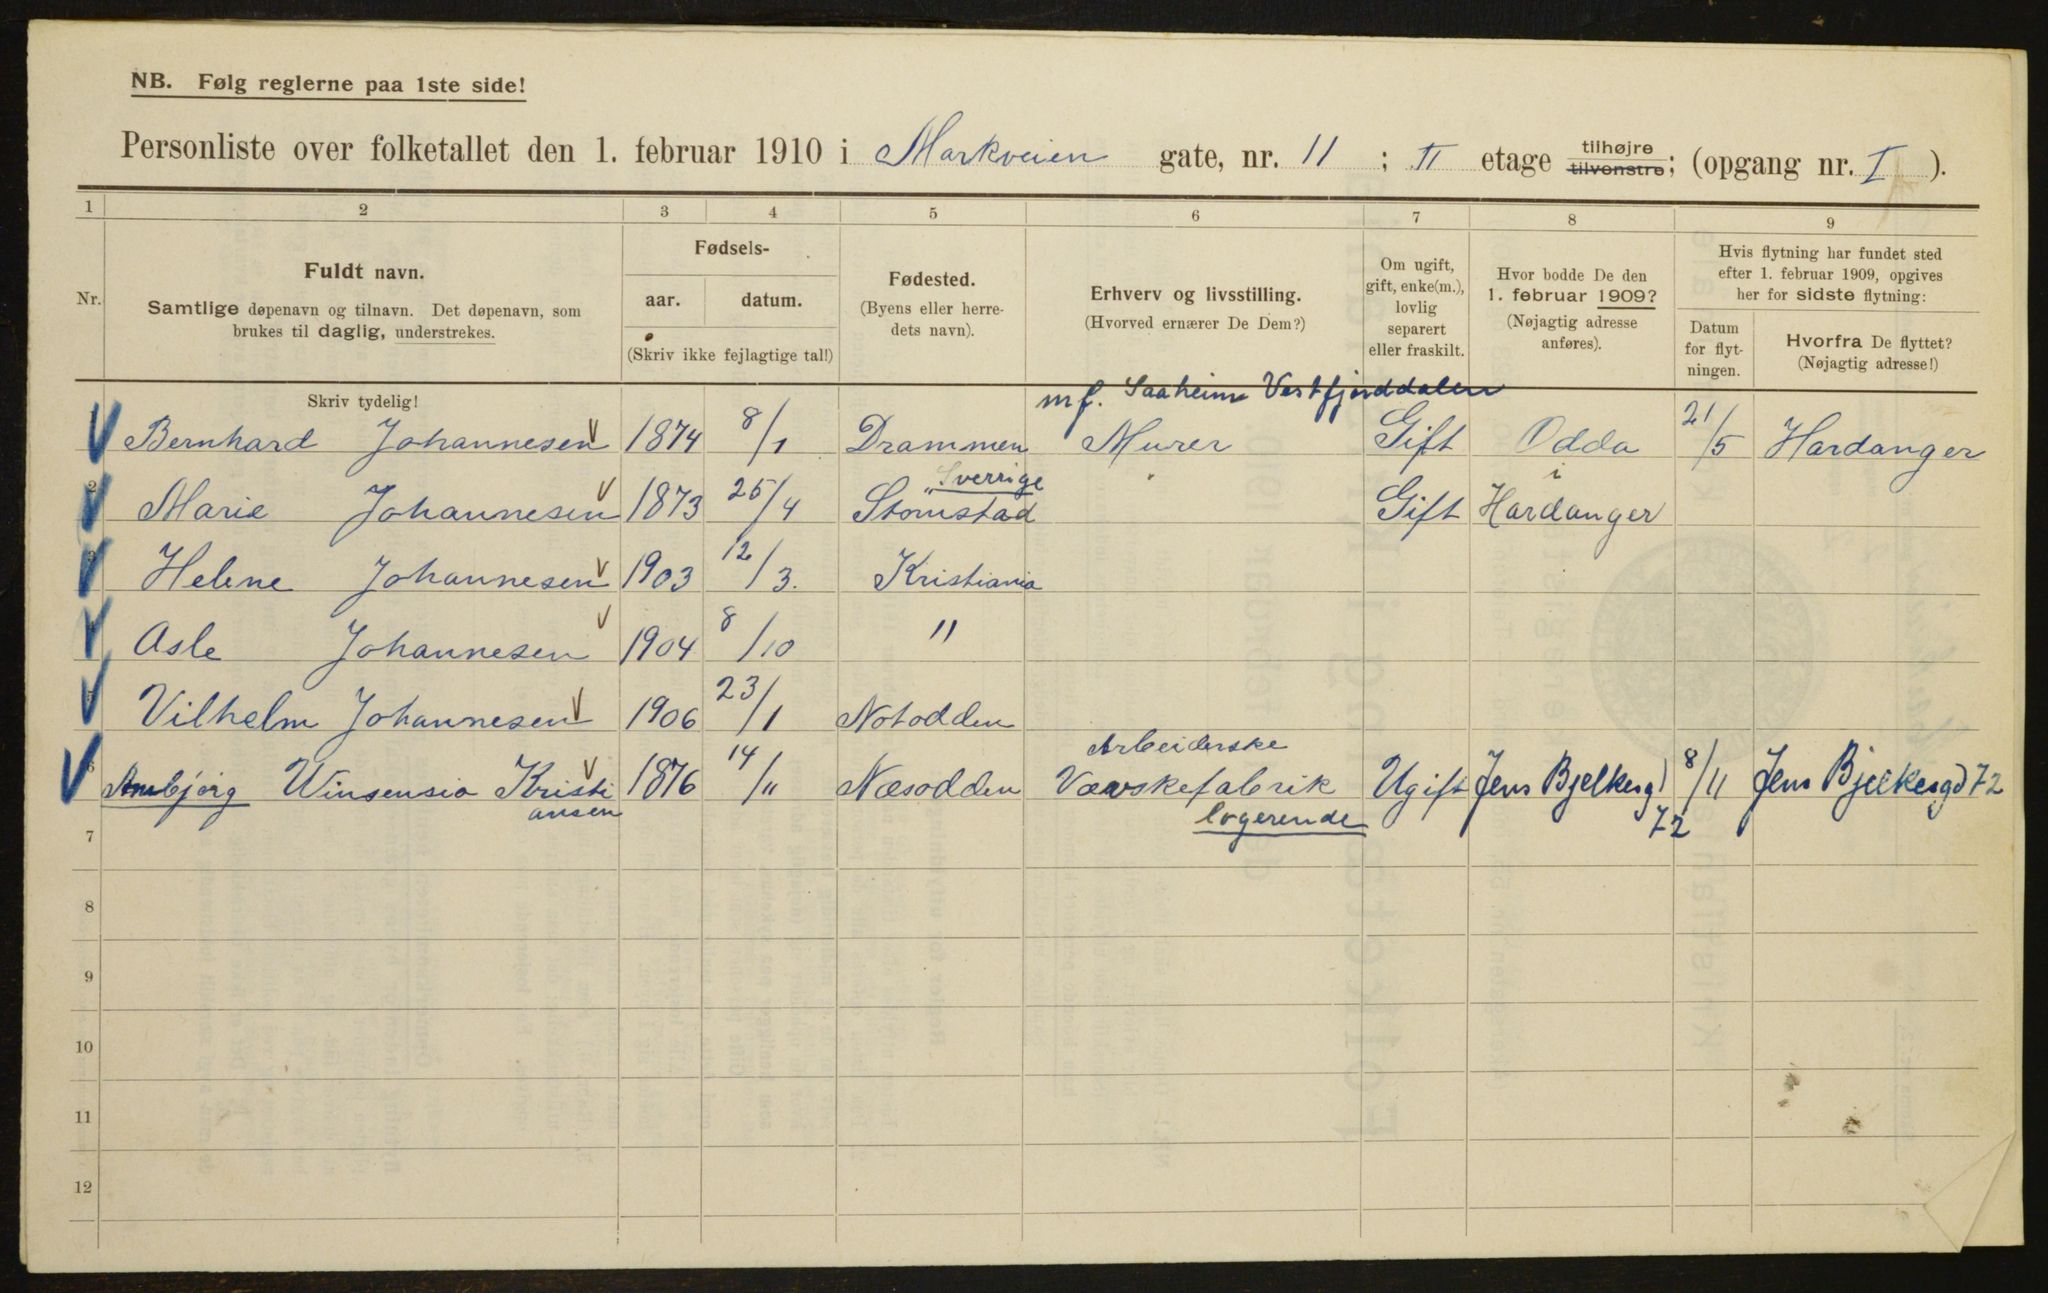 NB. Følg reglerne paa 1ste side!
Personliste over folketallet den 1. februar 1910 i Markveien gate, nr. 11 ; II etage tilhøjre tilvenstre; (opgang nr. I ).
1 2 3 4 5 6 7 8 9
Nr.
Fuldt navn.
Samtlige døpenavn og tilnavn. Det døpenavn, som
brukes til daglig, understrekes.
Fødsels-
aar. datum.
(Skriv ikke fejlagtige tal!)
Fødested.
(Byens eller herre-
dets navn).
Erhverv og livsstilling.
(Hvorved ernærer De Dem?)
Om ugift,
gift, enke(m.),
lovlig
separert
eller fraskilt.
Hvor bodde De den
1. februar 1909?
(Nøjagtig adresse
anføres).
Hvis flytning har fundet sted
efter 1. februar 1909, opgives
her for sidste flytning:
Datum
for flyt-
ningen.
Hvorfra De flyttet?
(Nøjagtig adresse!)
Skriv tydelig!
mf. Saaheim Vestfjorddalen
1 Bernhard Johannesen 1874 8/1 Drammen Murer Gift Odda 21/5 Hardanger
Sverrige i
2 Marie Johannesen 1873 25/4 Stomstad Gift Hardanger
3 Helene Johannesen 1903 12/3. Kristiania
4 Asle Johannesen 1904 8/10 "
5 Vilhelm Johannesen 1906 23/1 Notodden
Arbeiderske
6 Winsensia Kristi 1876 14/11 Næsodden Vævskefabrik Ugift Jens Bjelkesgd 8/11 Jens Bjelkesgd 72
ansen logerende 72
7
8
9
10
11
12